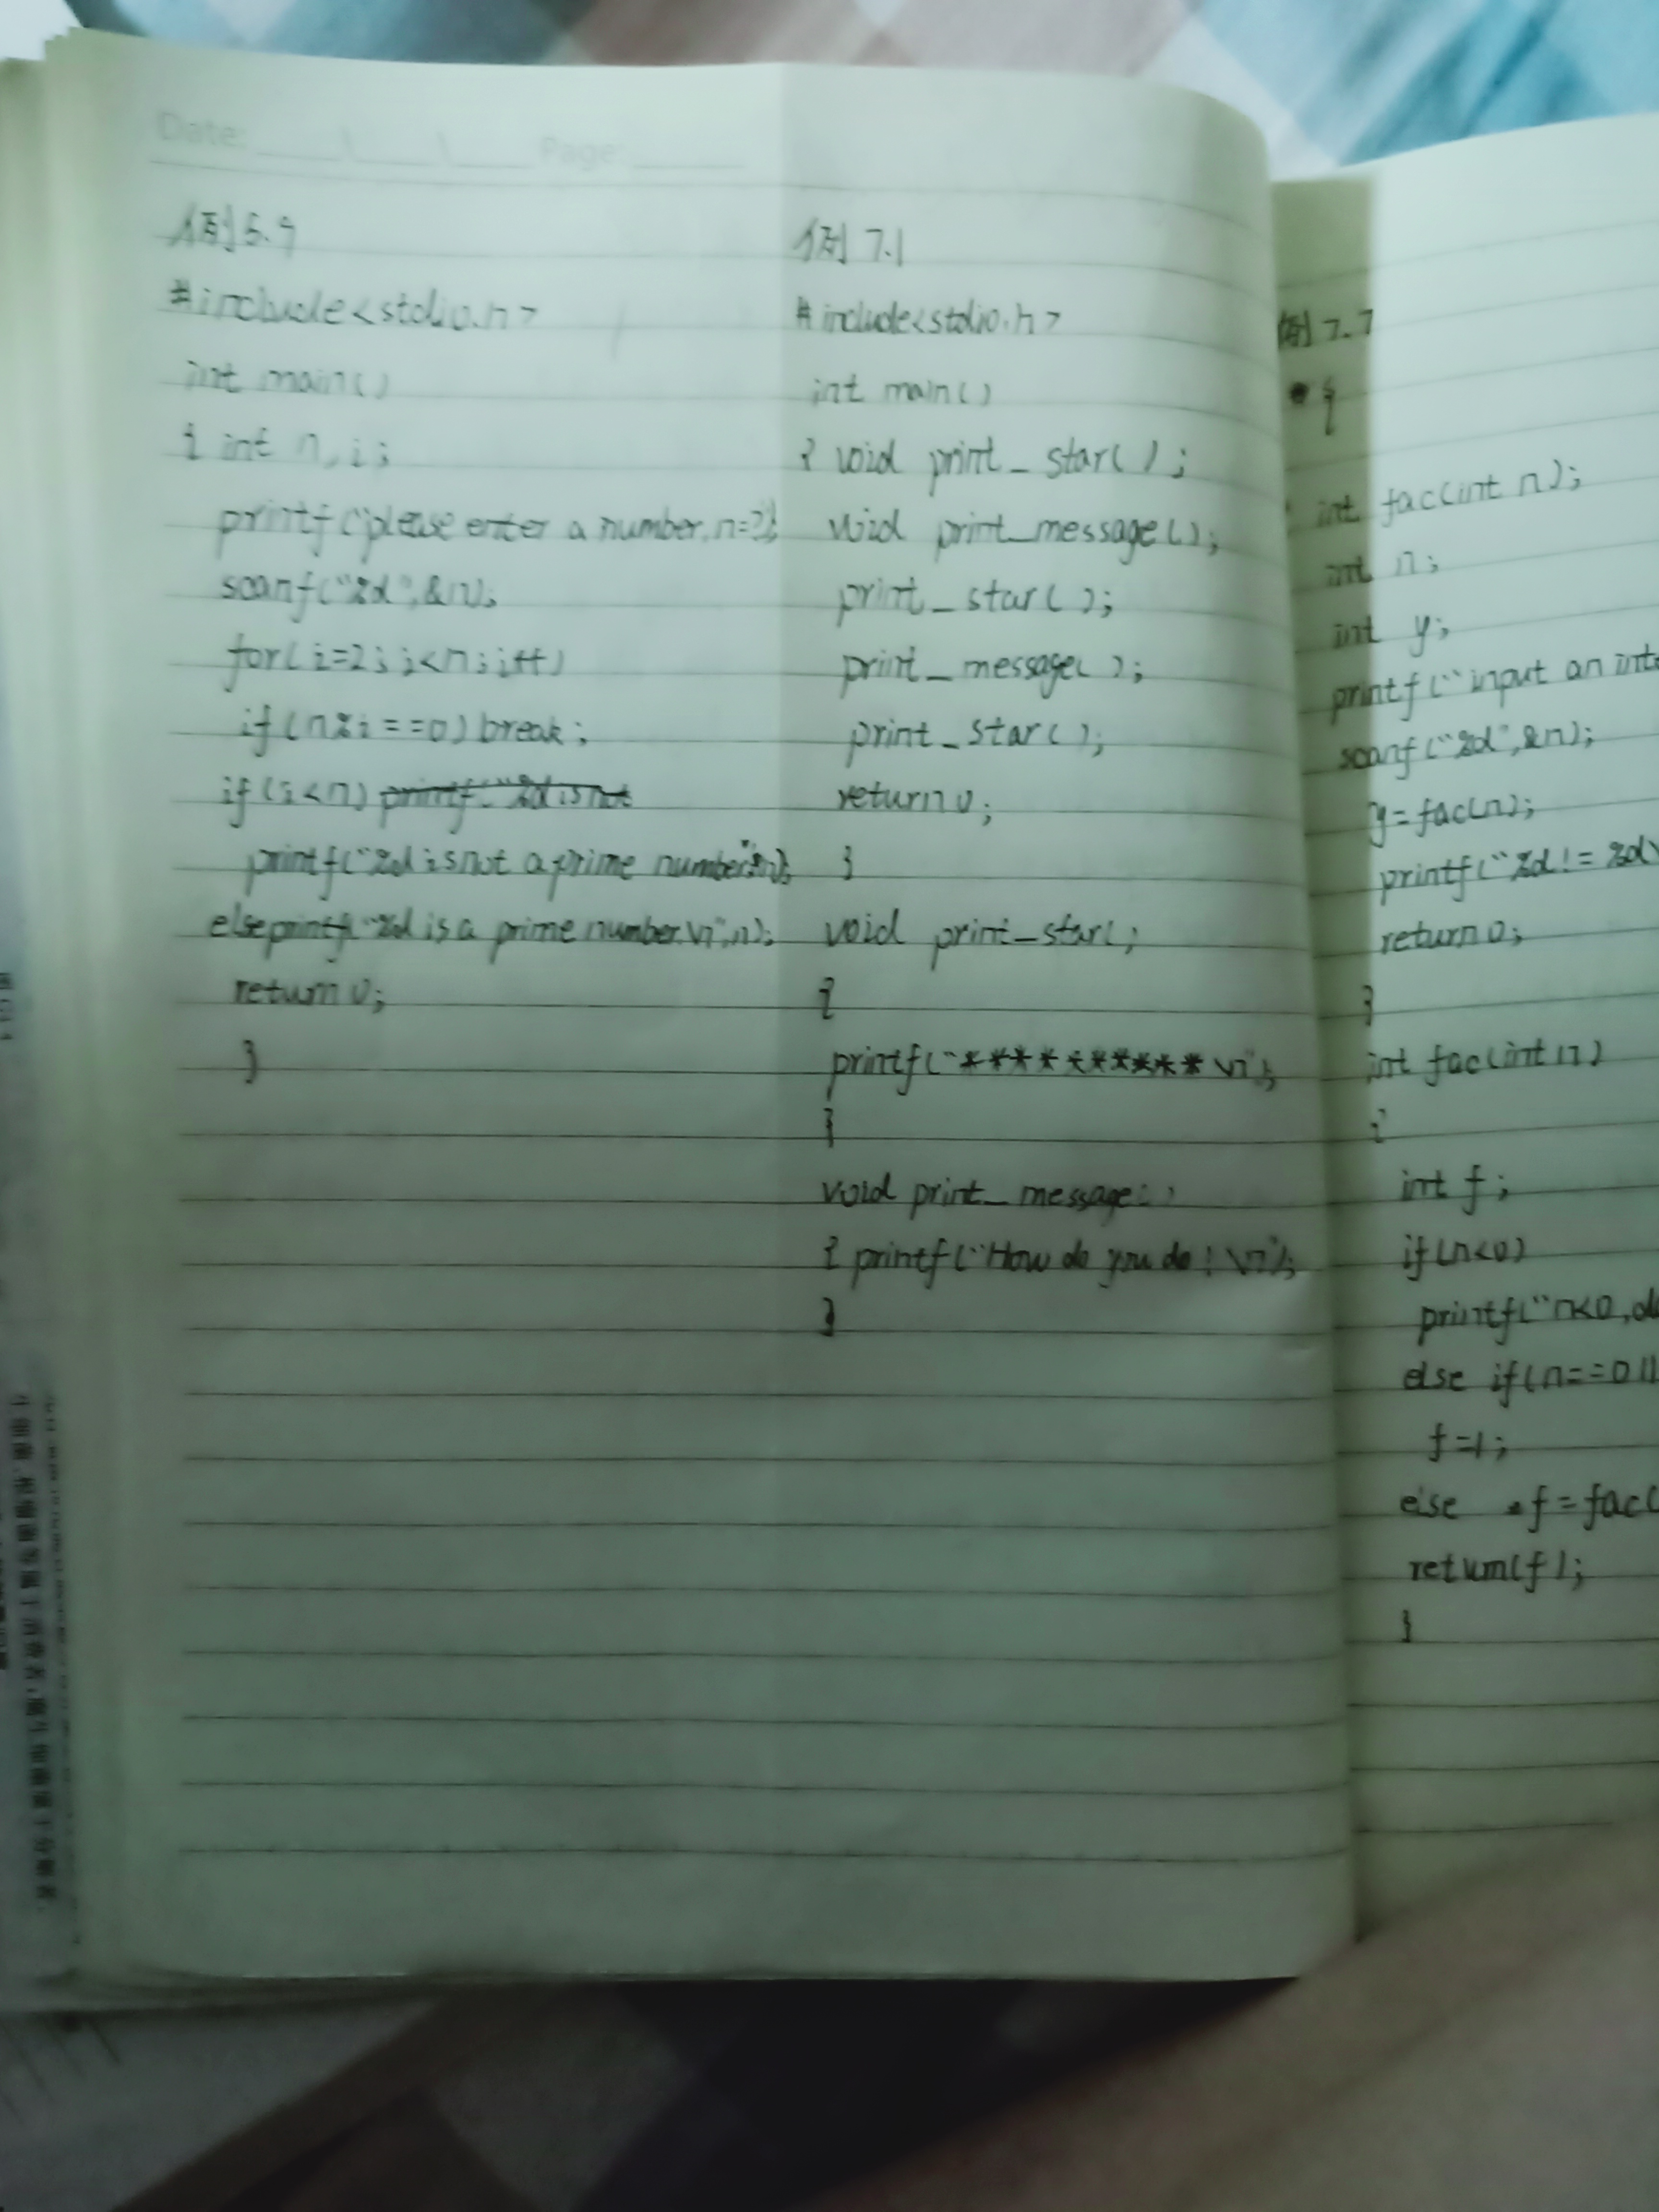 Date: Page:
例5.9
#include<stdio.h>
int main()
{ int n,i;
printf("please enter a number,n=?");
scanf("%d",&n);
for(i=2;i<n;i++)
if(n%i==0)break;
if(i<n)
printf("%d is not a prime number\n",n);
else printf("%d is a prime number.\n",n);
return 0;
}
例7.1
#include<stdio.h>
int main()
{ void print_star();
void print_message();
print_star();
print_message();
print_star();
return 0;
}
void print_star(;
{
printf("**********\n");
}
void print_message()
{ printf("How do you do!\n");
}
例7.7
{
int fac(int n);
int n;
int y;
printf("input an inte
scanf("%d",&n);
y=fac(n);
printf("%d!=%d\
return 0;
}
int fac(int n)
{
int f;
if(n<0)
printf("n<0,da
else if(n==0||
f=1;
else f=fac(
return(f);
}